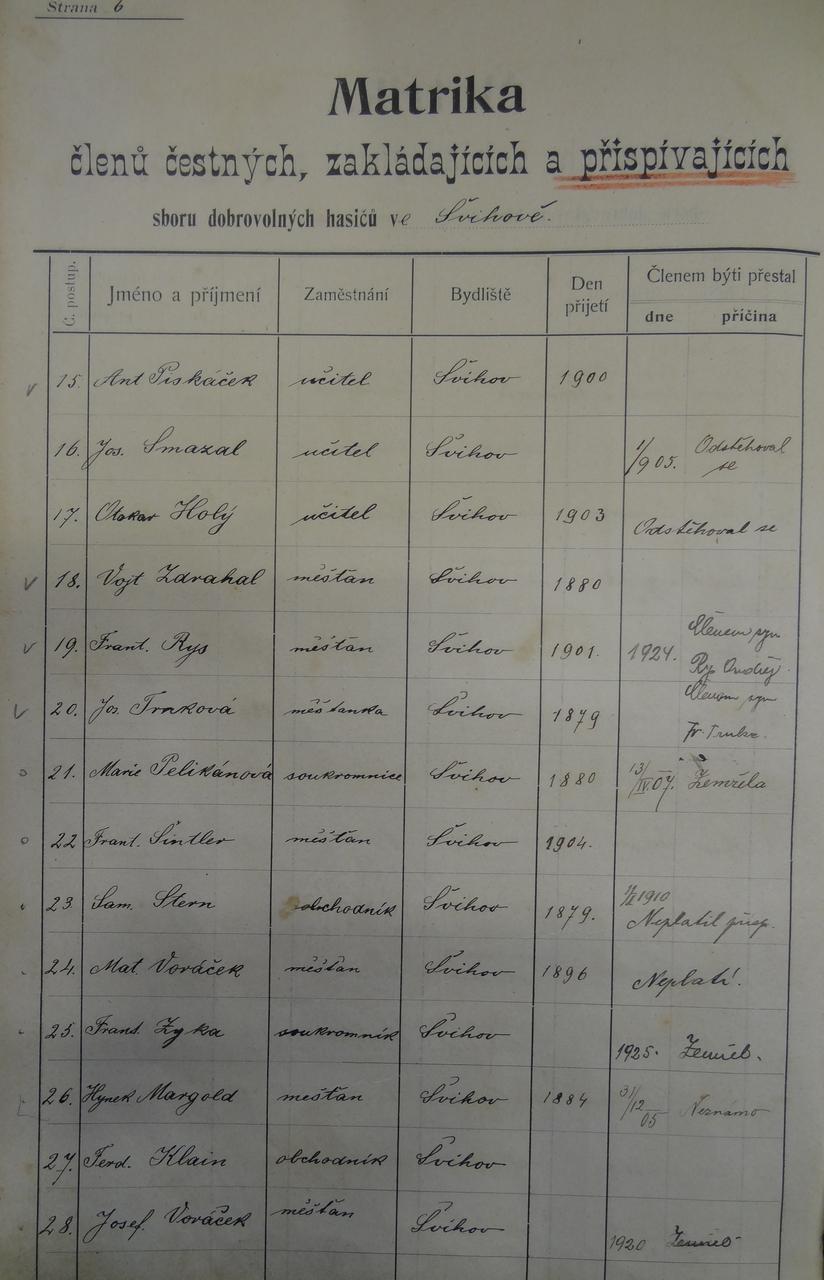 Strana 6
Matrika
členů čestných, zakládajících a přispívajících
sboru dobrovolných hasičů ve Švihově.
Č. postup. Jméno a příjmení Zaměstnání Bydliště Den přijetí Členem býti přestal
dne příčina
15. Ant Piskáček učitel Švihov 1900
16. Jos. Smazal učitel Švihov 1/9 05. Odstěhoval se
17. Otakar Holý učitel Švihov 1903 Odstěhoval se
18. Vojt Zdrahal měšťan Švihov 1880
19. Frant. Rys měšťan Švihov 1901. 1924. Členem syn Rys Ondřej.
20. Jos. Trnková měšťanka Švihov 1879 Členem syn Fr.
21. Marie Pelikánová soukromnice Švihov 1880 13/IV.07. Zemřela
22 Frant. Šintler měšťan Švihov 1904.
23. Sam. Stern obchodník Švihov 1879. 1910 Neplatil přísp.
24. Mat. Voráček měšťan Švihov 1896 Neplatí.
25. Frant. Zyka soukromník Švihov 1925. Zemřel.
26. Hynek Margold mešťan Švihov 1884 31/12 05 Neznámo
27. Ferd. Klain obchodník Švihov
28. Josef. Voráček měšťan Švihov 1920 Zemřel